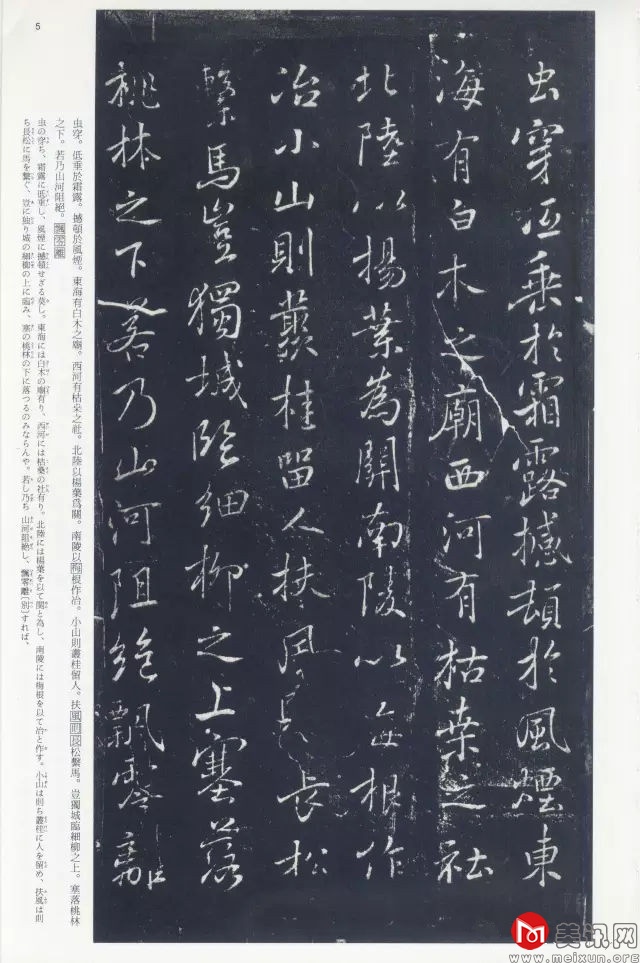 5
虫穿低垂於霜露撼頓於風煙東
海有白木之廟西河有枯桒之社
北陸以楊葉為關南陵以每根作
冶小山則叢桂留人扶風長松
繫馬豈獨城臨細柳之上塞落
桃林之下若乃山河阻絶飄零離
虫穿。低垂於霜露。撼頓於風煙。東海有白木之廟。西河有枯桒之社。北陸以楊葉爲關。南陵以梅根作冶。小山則叢桂留人。扶風則長松繫馬。豈獨城臨細柳之上。塞落桃林
之下。若乃山河阻絶。飄零離
虫の穿ち、霜露に低垂し、風煙に撼頓せざる莫し。東海には白木の廟有り、西河には枯桑の社有り。北陸には楊葉を以て関と為し、南陵には梅根を以て冶と作す。小山は則ち叢桂に人を留め、扶風は則
ち長松に馬を繋ぐ、豈に独り城の細柳の上に臨み、塞の桃林の下に落つるのみならんや。若し乃ち 山河阻絶し、飄零離〔別〕すれば、
美讯网
www.meixun.org